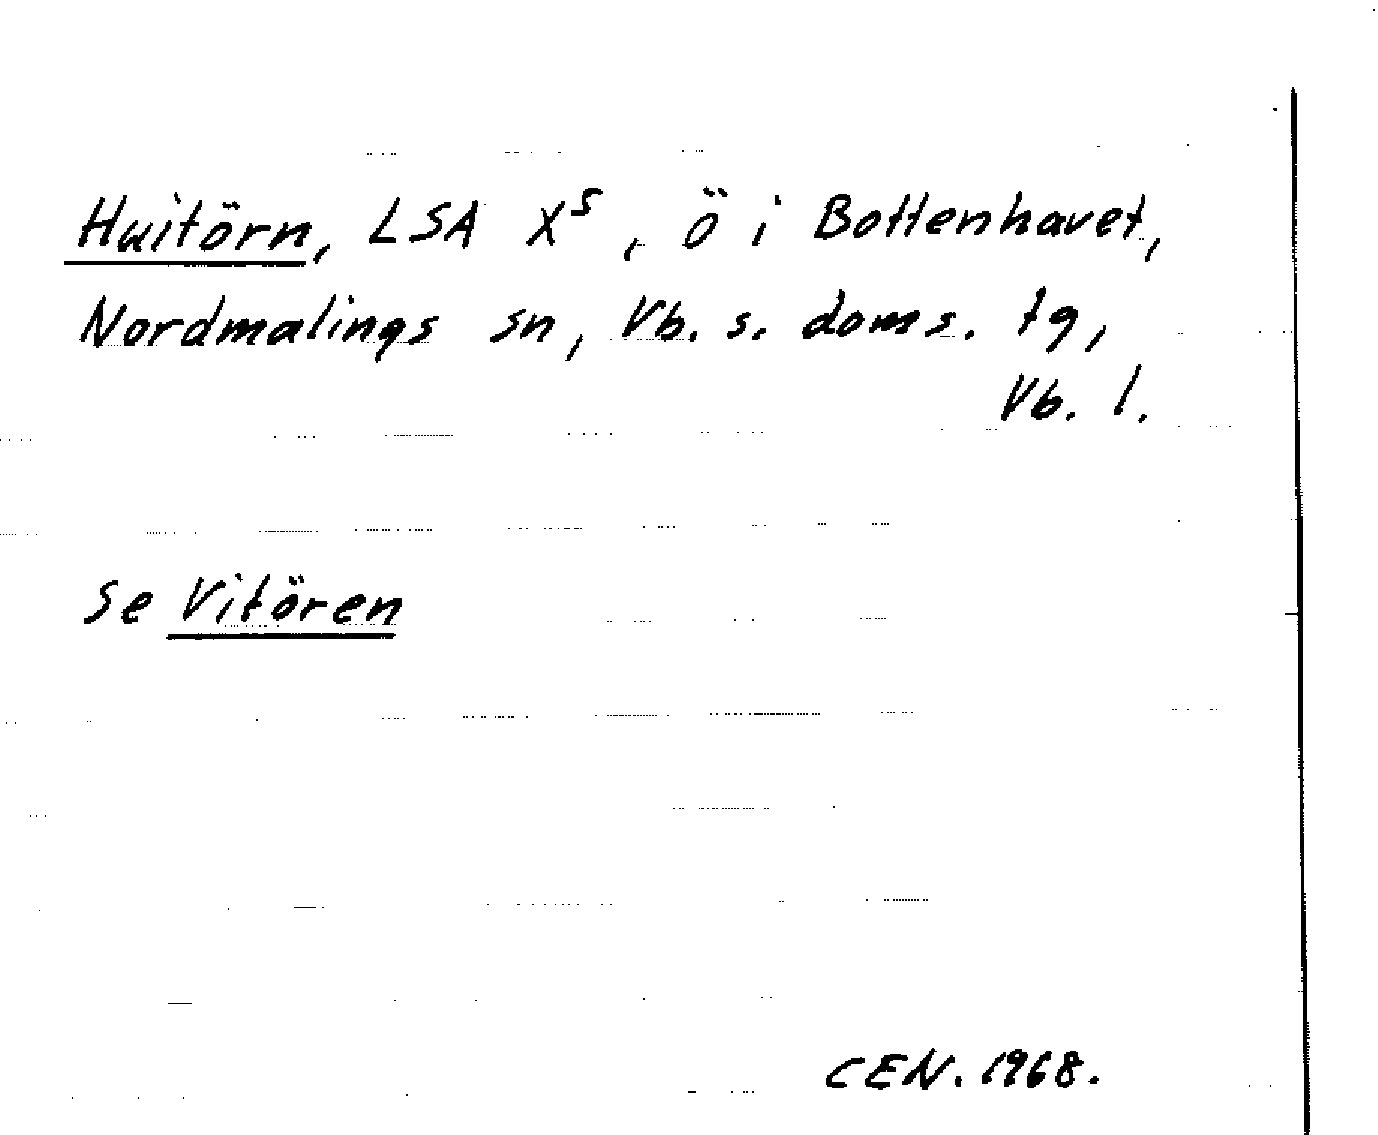 Hwitörn, LSA X⁵, ö i Bottenhavet,
Nordmalings sn, Vb. s. doms. tg,
Vb. l.
Se Vitören
CEN. 1968.